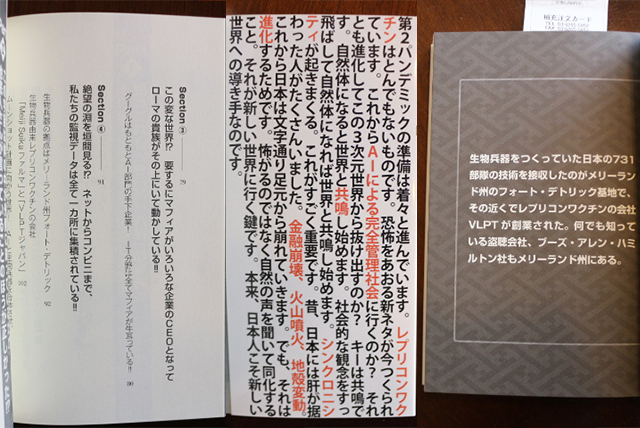 Section ③
この変な世界!? 要するにマフィアがいろいろな企業のCEOとなって
ローマの貴族がその上にいて動かしている!!
79
グーグルはもともとAI部門の手下企業!
80
Section ④
絶望の淵を垣間見る!? ネットからコンビニまで、
私たちの監視データは全て一カ所に集積されている!!
91
生物兵器の拠点はメリーランド州フォート・デトリック
92
生物兵器由来レプリコンワクチンの会社
「Meiji Seikaファルマ」と「VLPTジャパン」
102
第2パンデミックの準備は着々と進んでいます。レプリコンワク
チンはとんでもないものです。恐怖をあおる新ネタが今つくられ
ています。これからAIによる完全管理社会に行くのか? それ
とも進化してこの3次元世界から抜け出すのか? キーは共鳴で
す。自然体になると世界と共鳴し始めます。社会的な観念をすっ
飛ばして自然体になれば世界と共鳴し始めます。シンクロニシ
ティが起きまくる。これがすごく重要です。昔、日本には肝が据
わった人がたくさんいました。金融崩壊、火山噴火、地殻変動。
これから日本は文字通り足元から崩れていきます。でも、それは
進化するためです。怖がるのではなく自然の声を聞いて同化する
こと。それが新しい世界に行く鍵です。本来、日本人こそ新しい
世界への導き手なのです。
補充注文カード
生物兵器をつくっていた日本の731
部隊の技術を接収したのがメリーラン
ド州のフォート・デトリック基地で、
その近くでレプリコンワクチンの会社
VLPTが創業された。何でも知って
いる盗聴会社、ブーズ・アレン・ハミ
ルトン社もメリーランド州にある。